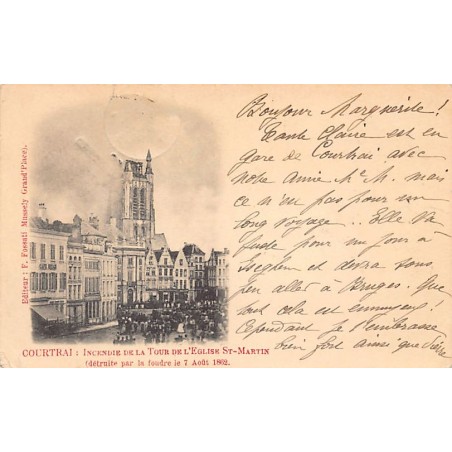 Bonjour Marguerite!
Tante Claire est en
gare de Courtrai avec
notre amie M. mais
ce n'est pas pour un
long voyage... Elle va
juste pour un jour à
Iseghem et devra sous
peu aller à Bruges. Que
tout cela est ennuyeux!
Cependant je t'embrasse
bien fort ainsi que
Editeur: F. Fossati Mussely Grand'Place).
COURTRAI: INCENDIE DE LA TOUR DE L'EGLISE ST-MARTIN
(détruite par la foudre le 7 Août 1862.